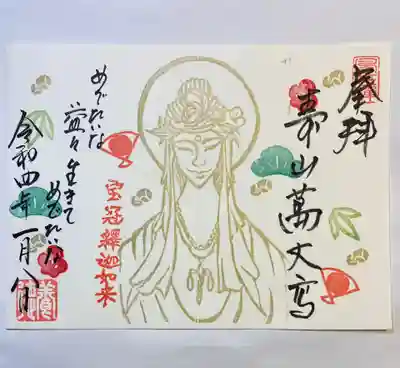 奉拝
寿山萬丈高
宝冠釋迦如来
めでたいな
益々生きて
めでたいな
令和四年一月八日